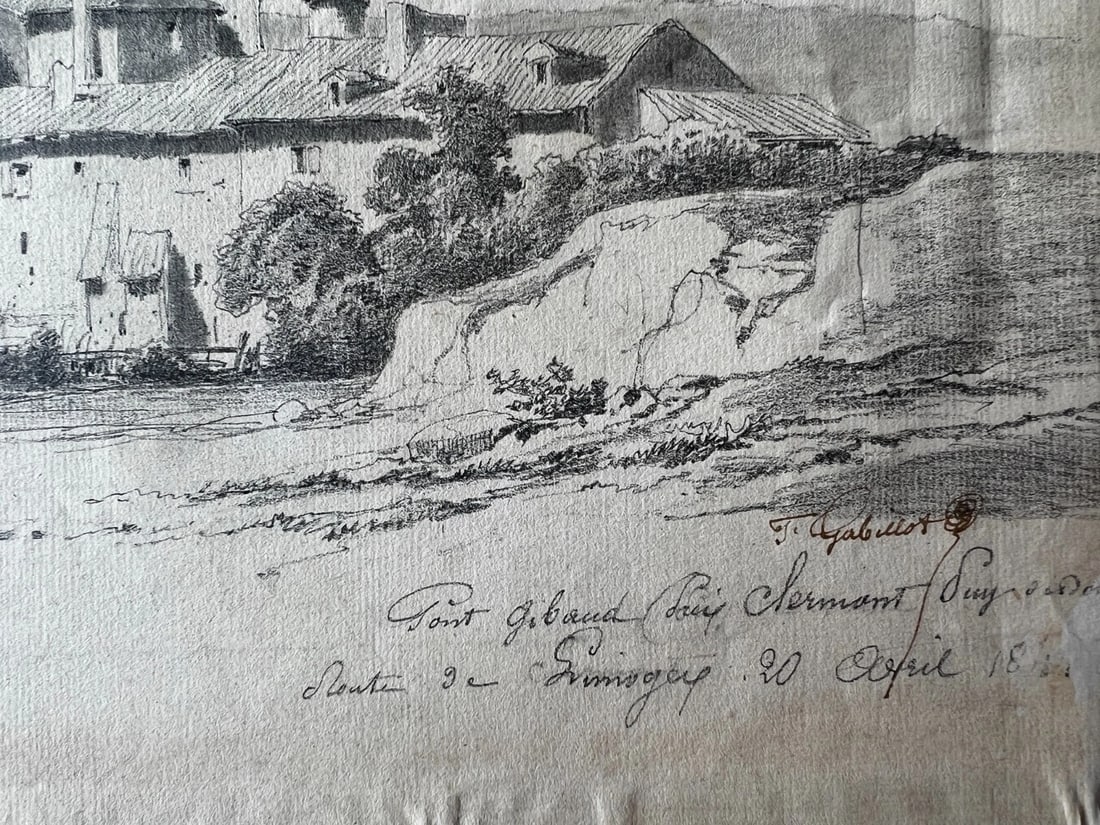 T. Gabillot
Pont Gibaud près Clermont Puy de Do
Route de Limoges. 20 Avril 18